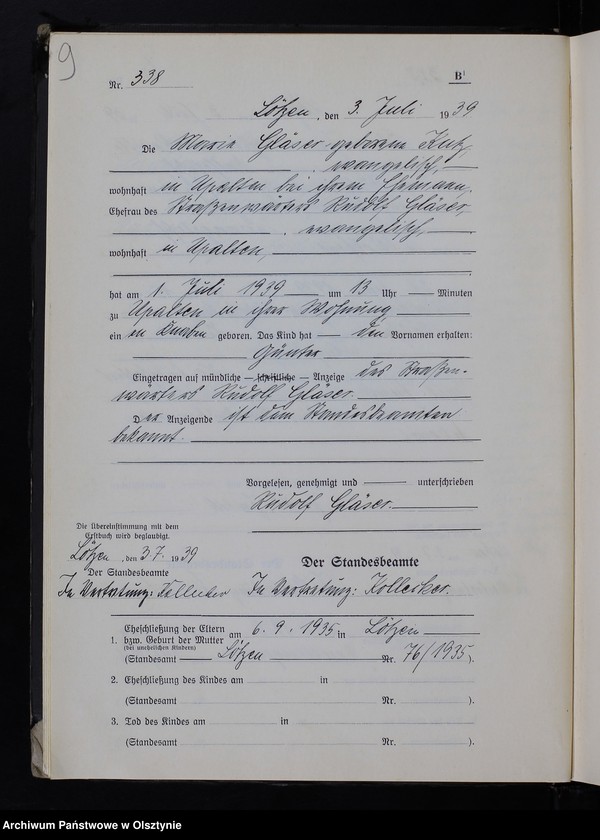 9
Nr. 338
B¹
Lötzen, den 3. Juli 1939
Die Marie Gläser geborene
evangelisch,
wohnhaft in Upalten bei ihrem Ehemann,
Ehefrau des Straßenwärters Rudolf Gläser,
, evangelisch,
wohnhaft in Upalten,
hat am 1. Juli 1939 um 13 Uhr Minuten
zu Upalten in ihrer Wohnung
einen Knaben geboren. Das Kind hat den Vornamen erhalten:
Günter
Eingetragen auf mündliche – schriftliche – Anzeige des Straßen-
wärters Rudolf Gläser.
Der Anzeigende ist dem Standesbeamten
bekannt.
Vorgelesen, genehmigt und unterschrieben
Rudolf Gläser.
Die Übereinstimmung mit dem
Erstbuch wird beglaubigt.
Lötzen, den 3.7. 1939
Der Standesbeamte
In Vertretung:
Der Standesbeamte
In Vertretung:
Eheschließung der Eltern am 6.9.1935 in Lötzen
1. bzw. Geburt der Mutter
(bei unehelichen Kindern)
(Standesamt Lötzen Nr. 76/1935).
2. Eheschließung des Kindes am in
(Standesamt Nr. ).
3. Tod des Kindes am in
(Standesamt Nr. ).
Archiwum Państwowe w Olsztynie